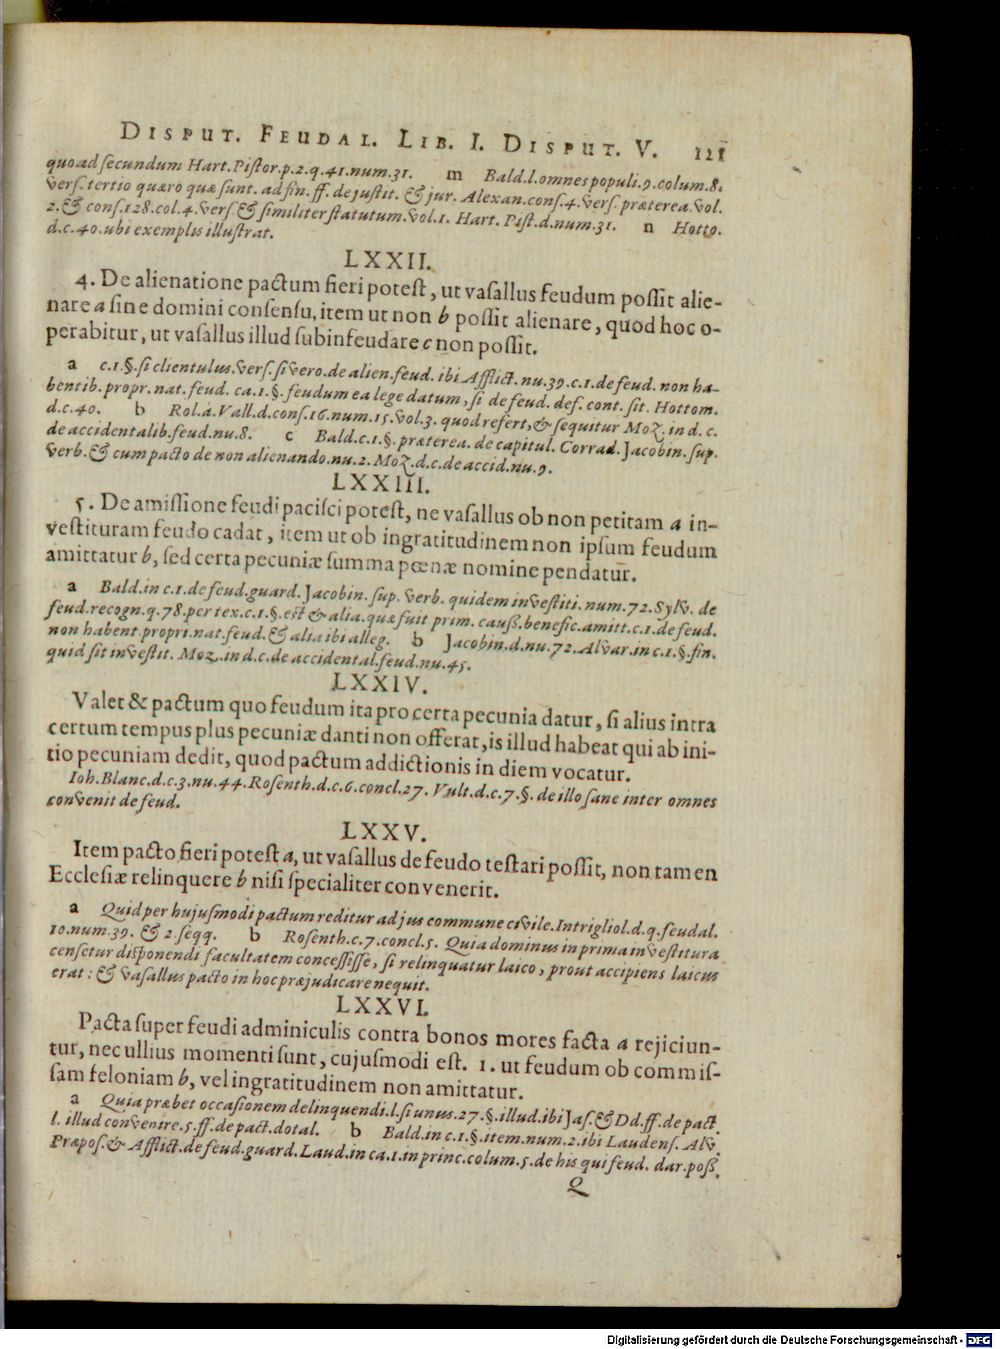 DISPUT. FEUDAL. LIB. I. DISPUT. V. 121
quoad secundum Hart. Pistor. p. 2. q. 41. num. 31. m Bald. l. omnes populi. 9. colum. 8.
vers. tertio quæro quæ sunt. ad fin. ff. de justit. & jur. Alexan. cons. 4. vers. præterea. vol.
2. & cons. 128. col. 4. vers. & similiter statutum. vol. 1. Hart. Pist. d. num. 31. n Hotto.
d. c. 40. ubi exemplis illustrat.
LXXII.
4. De alienatione pactum fieri potest, ut vasallus feudum possit alie-
nare a sine domini consensu, item ut non b possit alienare, quod hoc o-
perabitur, ut vasallus illud subinfeudare c non possit.
a c. 1. §. si clientulus. vers. si vero. de alien. feud. ibi Afflict. nu. 39. c. 1. de feud. non ha-
bentib. propr. nat. feud. ca. 1. §. feudum ea lege datum, si de feud. def. cont. sit. Hottom.
d. c. 40. b Rol. à. Vall. d. cons. 16. num. 15. vol. 3. quod refert, & sequitur Moz. in d. c.
de accidentalib. feud. nu. 8. c Bald. c. 1. §. præterea. de capitul. Corrad. Jacobin. sup.
verb. & cum pacto de non alienando. nu. 2. Moz. d. c. de accid. nu. 9.
LXXIII.
5. De amissione feudi pacisci potest, ne vasallus ob non petitam a in-
vestituram feudo cadat, item ut ob ingratitudinem non ipsum feudum
amittatur b, sed certa pecuniæ summa pœnæ nomine pendatur.
a Bald. in c. 1. de feud. guard. Jacobin. sup. verb. quidem investiti. num. 72. Sylv. de
feud. recogn. q. 78. per tex. c. 1. §. est & alia. quæ fuit prim. causs. benefic. amitt. c. 1. de feud.
non habent. propri. nat. feud. & alia ibi alleg. b Jacobin. d. nu. 72. Alvar. in c. 1. §. fin.
quid sit investit. Moz. in d. c. de accidental. feud. nu. 45.
LXXIV.
Valet & pactum quo feudum ita pro certa pecunia datur, si alius intra
certum tempus plus pecuniæ danti non offerat, is illud habeat qui ab ini-
tio pecuniam dedit, quod pactum addictionis in diem vocatur.
Joh. Blanc. d. c. 3. nu. 44. Rosenth. d. c. 6. concl. 27. Vult. d. c. 7. §. de illo sane inter omnes
convenit de feud.
LXXV.
Item pacto fieri potest a, ut vasallus de feudo testari possit, non tamen
Ecclesiæ relinquere b nisi specialiter convenerit.
a Quid per hujusmodi pactum reditur ad jus commune civile. Intrigliol. d. q. feudal.
10. num. 39. & 2. seqq. b Rosenth. c. 7. concl. 5. Quia dominus in prima investitura
censetur disponendi facultatem concessisse, si relinquatur laico, prout accipiens laicus
erat: & vasallus pacto in hoc præjudicare nequit.
LXXVI.
Pacta super feudi adminiculis contra bonos mores facta a rejiciun-
tur, nec ullius momenti sunt, cujusmodi est. 1. ut feudum ob commis-
sam feloniam b, vel ingratitudinem non amittatur.
a Quia præbet occasionem delinquendi. l. si unus. 27. §. illud. ibi Jas. & Dd. ff. de pact.
l. illud convenire. 5. ff. de pact. dotal. b Bald. in c. 1. §. item. num. 2. ibi Laudens. Alv.
Præpos. & Afflict. de feud. guard. Laud. in ca. 1. in princ. colum. 5. de his qui feud. dar. poss.
Q
Digitalisierung gefördert durch die Deutsche Forschungsgemeinschaft - DFG